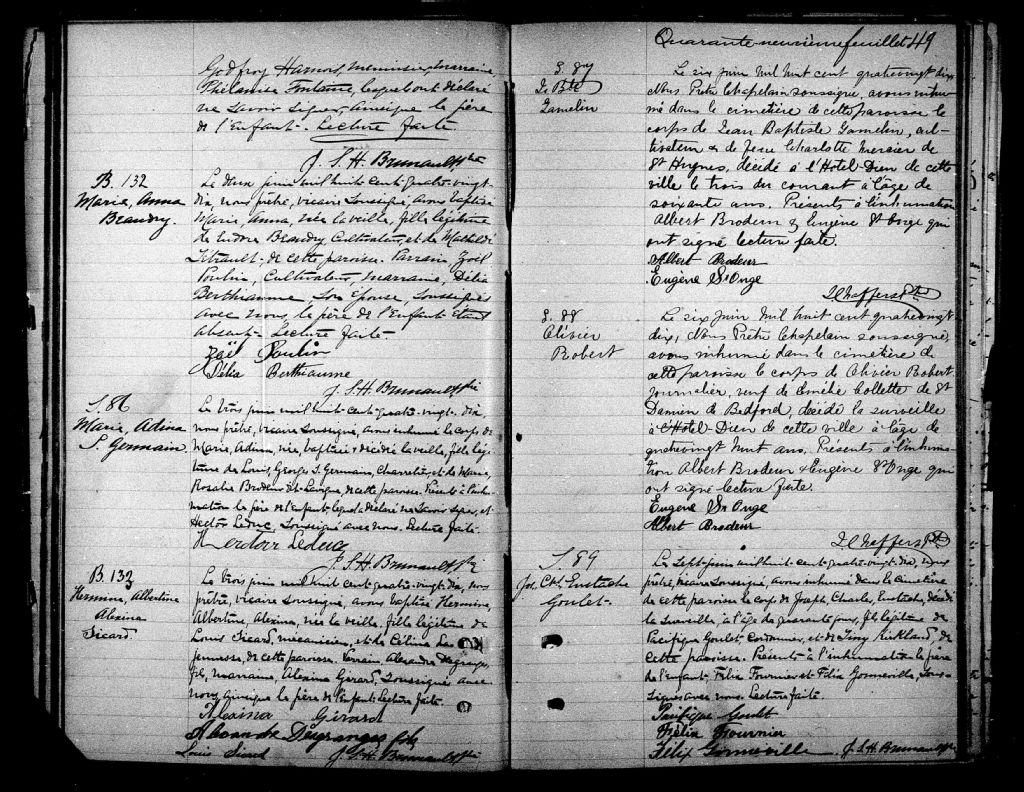 Godfroy Hamois, menuisier, marraine,
Philomène Fontaine, lesquels ont déclaré
ne savoir signer, ainsi que le père
de l'Enfant. Lecture faite.
J. S. H. Brunault Ptre
B. 132
Marie, Anna
Beaudry.
Le deux juin mil huit cent quatre-vingt-
dix, nous prêtre, vicaire soussigné, avons baptisé
Marie, Anna, née la veille, fille légitime
de Beaudry Cultivateur, et de Mathilde
Tétrault, de cette paroisse. Parrain, Zoël
Poulin, Cultivateur, marraine, Délia
Berthiaume son Epouse, soussignés
avec nous, le père de l'Enfant étant
absent. Lecture faite.
Zoël Poulin
Délia Berthiaume
J. S. H. Brunault Ptre
S. 86
Marie, Adina
S. Germain
Le trois juin mil huit cent quatre-vingt-dix
nous prêtre, vicaire soussigné, avons inhumé le corps de
Marie, Adina, née, baptisée & décédée la veille, fille légi
time de Louis, George S. Germain, Charretier, et de Marie,
Rosalie Brodeur de cette paroisse. Présents à l'inhu-
mation le père de l'enfant lequel a déclaré ne savoir signer, et
Hector Leduc, soussigné avec nous. Lecture faite.
Hector Leduc
J. S. H. Brunault Ptre
B. 133
Hermine, Albertine
Alexina
Sicard
Le trois juin mil huit cent quatre-vingt-dix, nous
prêtre, vicaire soussigné, avons baptisé Hermine,
Albertine, Alexina, née la veille, fille légitime de
Louis Sicard, mécanicien, et de Célina La
jeunesse de cette paroisse. Parrain Alexandre Desgranges,
fils, marraine, Alexina Gerard, soussignés avec
nous ainsi que le père de l'Enfant. Lecture faite.
Alexina Girard
Alexandre Desgranges fils
Louis Sicard J. S. H. Brunault Ptre
Quarante-neuvième feuillet 49
S. 87
J. Bte
Gamelin
Le six juin mil huit cent quatrevingt dix
Nous Prêtre Chapelain soussigné, avons inhu-
mé dans le cimetière de cette paroisse le
corps de Jean Baptiste Gamelin, cul-
tivateur & de feue Charlotte Mercier de
St Hugues, décédé à l'Hotel-Dieu de cette
ville le trois du courant à l'âge de
soixante ans. Présents à l'inhumation
Albert Brodeur & Eugène St Onge qui
ont signé lecture faite.
Albert Brodeur
Eugène St Onge
S. 88
Olivier
Robert
Le six juin mil huit cent quatrevingt
dix, Nous Prêtre Chapelain soussigné,
avons inhumé dans le cimetière de
cette paroisse le corps de Olivier Robert
journalier, veuf de Collette de St
Damien de Bedford, décédé la surveille
à l'Hotel-Dieu de cette ville à l'âge de
quatrevingt huit ans. Présents à l'inhuma-
tion Albert Brodeur & Eugène St Onge qui
ont signé lecture faite.
Eugène St Onge
Albert Brodeur
S. 89
Jos. Chs. Eustache
Goulet
Le sept juin mil huit cent quatre-vingt-dix, nous
prêtre, vicaire soussigné, avons inhumé dans le cimetière
de cette paroisse le corps de Joseph, Charles, Eustache, décédé
la surveille, à l'âge de quarante jours, fils légitime de
Pacifique Goulet Cordonnier, et de Kirkland, de
cette paroisse. Présents à l'inhumation le père
de l'Enfant, Félix Fournier et Félix Gonneville, sous-
signés avec nous. Lecture faite.
Pacifique Goulet
Félix Fournier
Félix Gonneville J. S. H. Brunault Ptre